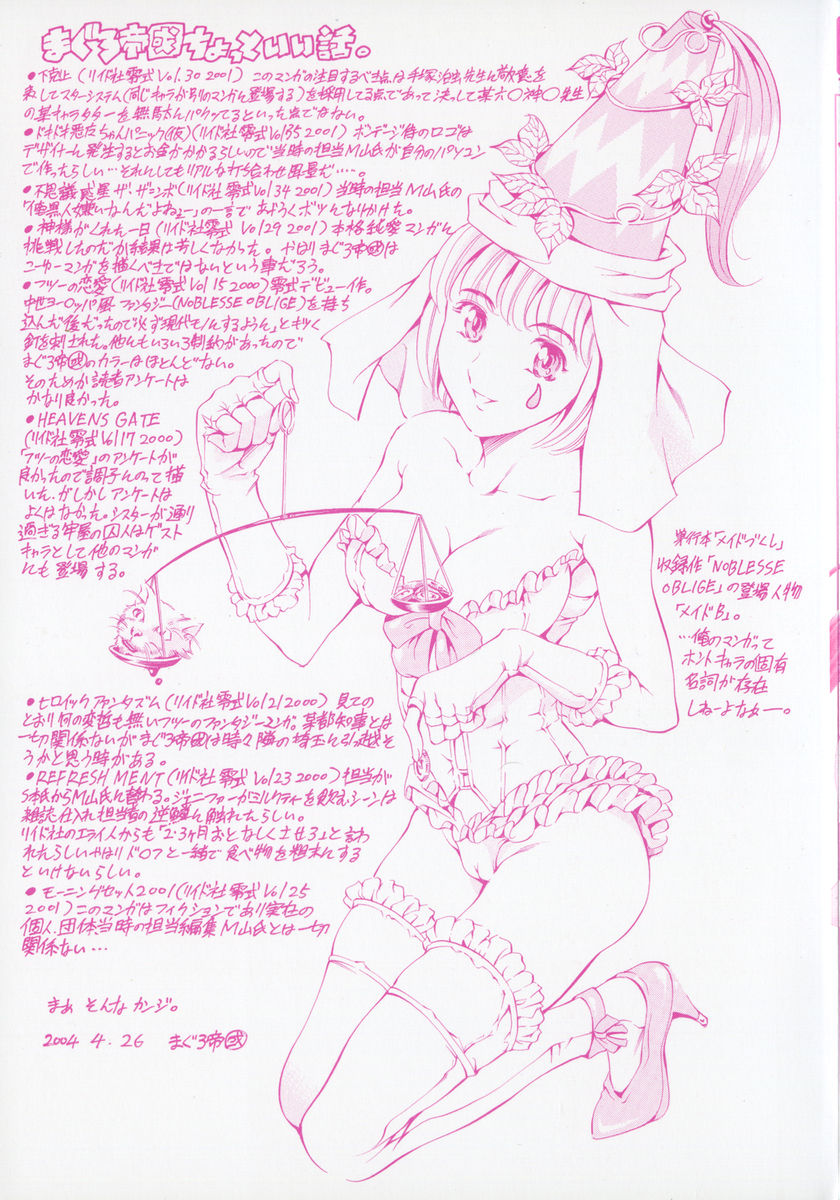 まぐろ帝国ちょっといい話。
●下剋上(リイド社零式Vol.30 2001) このマンガの注目するべき点は手塚治虫先生に敬意を
表してスターシステム(同じキャラが別のマンガに登場する)を採用してる点であって決して某六〇神〇先生の
某キャラクターを無断でパクってるといった点ではない。
(仮)(リイド社零式Vol.35 2001) ボンデージ侍のロゴは
デザイナーに発生するとお金がかかるらしいので当時の担当M山氏が自分のパソコン
で作ったらしい…それにしてもリアルな打ち合わせ風景だ……。
●不思議惑星ザ・ザンボ(リイド社零式Vol.34 2001) 当時の担当M山氏の
「俺異人嫌いなんだよねェー」の一言であやうくボツになりかけた。
●神様がくれた一日(リイド社零式Vol.29 2001) 本格純愛マンガに
挑戦したのだが結果は芳しくなかった。やはりまぐろ帝国は
こーゆーマンガを描くべきではないという事だろう。
●フツーの恋愛(リイド社零式Vol.15 2000) 零式デビュー作。
中世ヨーロッパ風ファンタジー(NOBLESSE OBLIGE)を持ち
込んだ後だったので「必ず現代モノにするように」とキツく
釘を刺された。他にもいろいろ制約があったので
まぐろ帝国のカラーはほとんどない。
そのためか読者アンケートは
かなり良かった。
●HEAVENS GATE
(リイド社零式Vol.17 2000)
「フツーの恋愛」のアンケートが
良かったので調子にのって描
いた。がしかしアンケートは
よくはなかった。シスターが通り
過ぎる牢屋の囚人はゲスト
キャラとして他のマンガ
にも登場する。
単行本「メイドづくし」
収録作「NOBLESSE
OBLIGE」の登場人物
「メイドB」。
…俺のマンガって
ホントキャラの固有
名詞が存在
しねーよなァー。
●ヒロイックファンタズム(リイド社零式Vol.21 2000) 見ての
とおり何の変哲も無いフツーのファンタジーマンガ。某都知事とは
一切関係ないがまぐろ帝国は時々隣の埼玉に引っ越そ
うかと思う時がある。
●REFRESH MENT(リイド社零式Vol.23 2000) 担当が
S本氏からM山氏に替わる。ジェニファーがミルクティーを飲むシーンは
雑誌仕入れ担当者の逆鱗に触れたらしい。
リイド社のエライ人からも「2・3ヶ月おとなしくさせろ」と言わ
れたらしいやはりドロアと一緒で食べ物を粗末にする
といけないらしい。
●モーニングセット2001(リイド社零式Vol.25
2001) このマンガはフィクションであり実在の
個人、団体当時の担当編集M山氏とは一切
関係ない…
まぁ そんなカンジ。
2004 4.26 まぐろ帝国